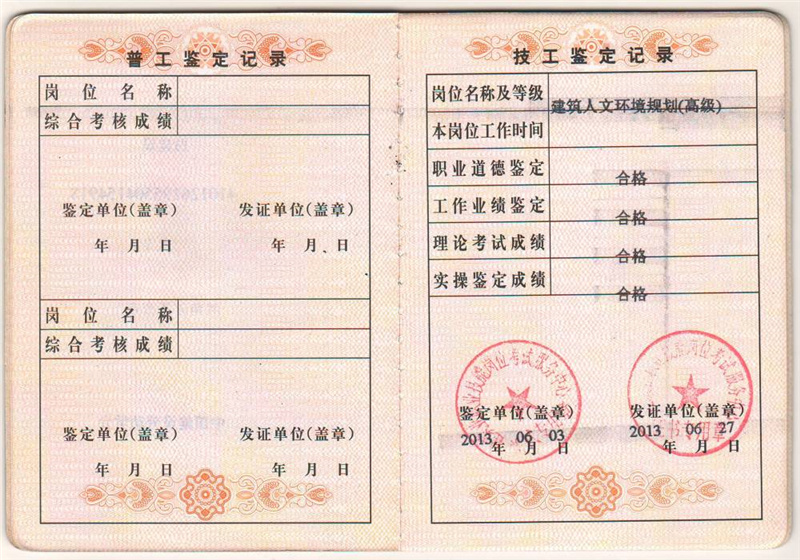 普工鉴定记录
岗位名称
综合考核成绩
鉴定单位(盖章) 发证单位(盖章)
年 月 日 年 月 日
岗位名称
综合考核成绩
鉴定单位(盖章) 发证单位(盖章)
年 月 日 年 月 日
技工鉴定记录
岗位名称及等级 建筑人文环境规划(高级)
本岗位工作时间
职业道德鉴定 合格
工作业绩鉴定 合格
理论考试成绩 合格
实操鉴定成绩 合格
业技能岗位考试服务中心
技能岗位考试服务
鉴定单位(盖章) 发证单位(盖章)
2013 06 03 2013 06 27
年 月 日 年 月 日
证书专用章